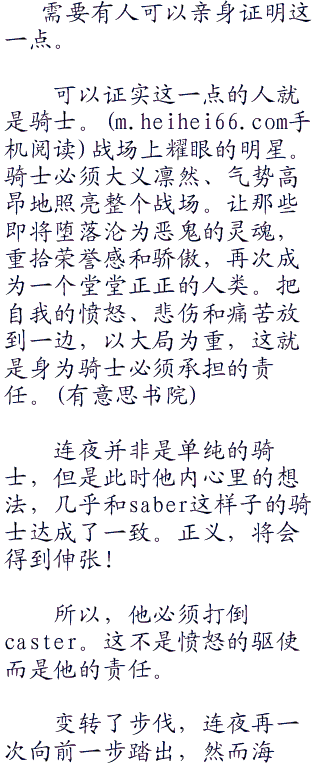 需要有人可以亲身证明这
一点。
可以证实这一点的人就
是骑士。(m.heihei66.com手
机阅读)战场上耀眼的明星。
骑士必须大义凛然、气势高
昂地照亮整个战场。让那些
即将堕落沦为恶鬼的灵魂，
重拾荣誉感和骄傲，再次成
为一个堂堂正正的人类。把
自我的愤怒、悲伤和痛苦放
到一边，以大局为重，这就
是身为骑士必须承担的责
任。(有意思书院)
连夜并非是单纯的骑
士，但是此时他内心里的想
法，几乎和saber这样子的骑
士达成了一致。正义，将会
得到伸张！
所以，他必须打倒
caster。这不是愤怒的驱使
而是他的责任。
变转了步伐，连夜再一
次向前一步踏出，然而海